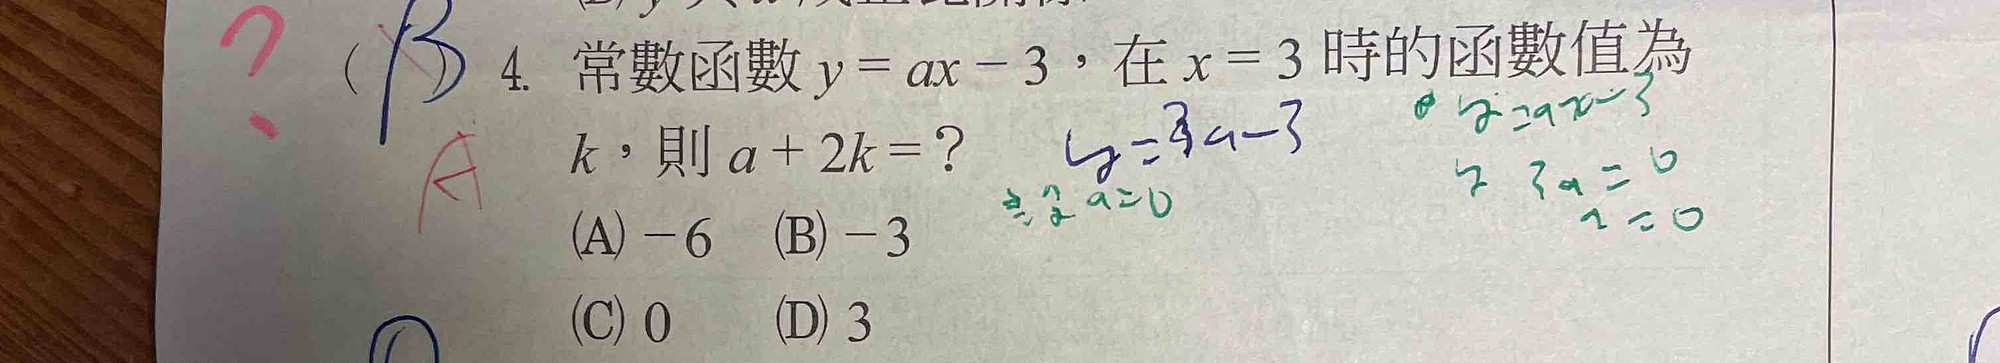 ?
(B) 4. 常數函數 y = ax − 3，在 x = 3 時的函數值為
y=ax-3
k，則 a + 2k = ? y=3a-3
A
3a=0
a=0
a=0
(A) −6 (B) −3
(C) 0 (D) 3